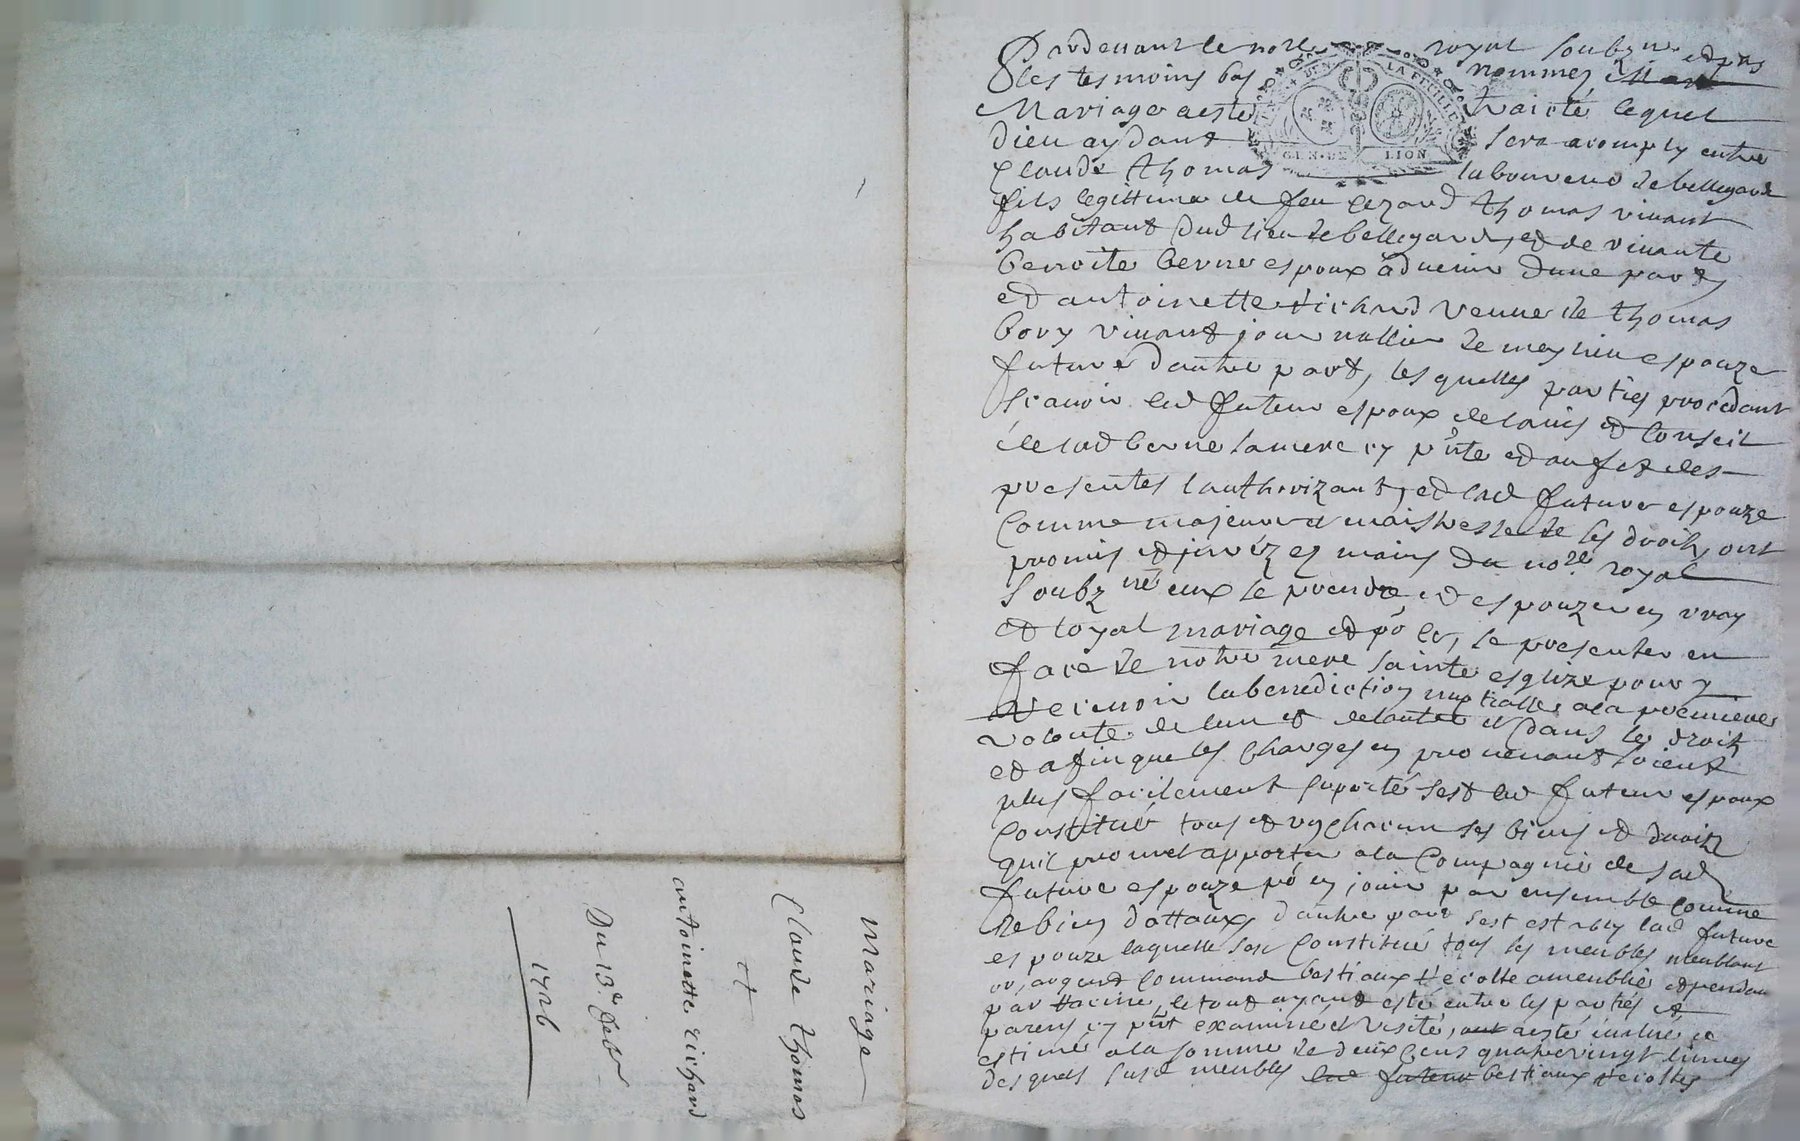 Mariage
Claude Thomas
et
antoinette richard
Du 13e febr
1726
Pardevant le no.re royal soubz.né et pns
les tesmoins bas nommez
Mariage a esté traicté lequel
dieu aydant sera acomply entre
Claude Thomas laboureur de bellegarde
fils legittime de feu Thomas vivant
habitant dud lieu de bellegarde, et de vivante
benoite berne espoux advenir dune part
et antoinette richard veuve de Thomas
bory vivant journallier de meylieu espouze
future dautre part, lesquelles parties procedant
scavoir led futeur espoux de lavis et conseil
de lad berne sa mere cy pnte et au fet des
presentes lauthorizant, et lad future espouze
comme majeure et maistresse de ses droits, ont
promis et jurez es mains du no.re royal
soubz.né eux se prendre et espouzer en vray
et loyal mariage et po.r ce, se presenter en
face de notre mere sainte esglize pour y
recevoir la benediction nuptialle a la premiere
volonté de lun et de lautre et dans les droits
et afin que les charges en provenant soient
plus facilement suporté sest led futeur espoux
constitué tous et un chacun ses biens et droits
quil promet apporter a la compagnie de sad
future espouze po.r en jouir par ensemble comme
de bien dottaux, dautre part sest estably lad future
espouze laquelle sest constitué tous les meubles meublant
or, argent commande bestiaux recolte ameublie et pendan
par racine, le tout ayant esté entre les parties et
parens cy pnt examiné et visité, a esté
estimé a la somme de deux cens quatrevingt livres
desquels susd meubles led futeur bestiaux recoltes
GEN. DE LION
LA FEUILLE